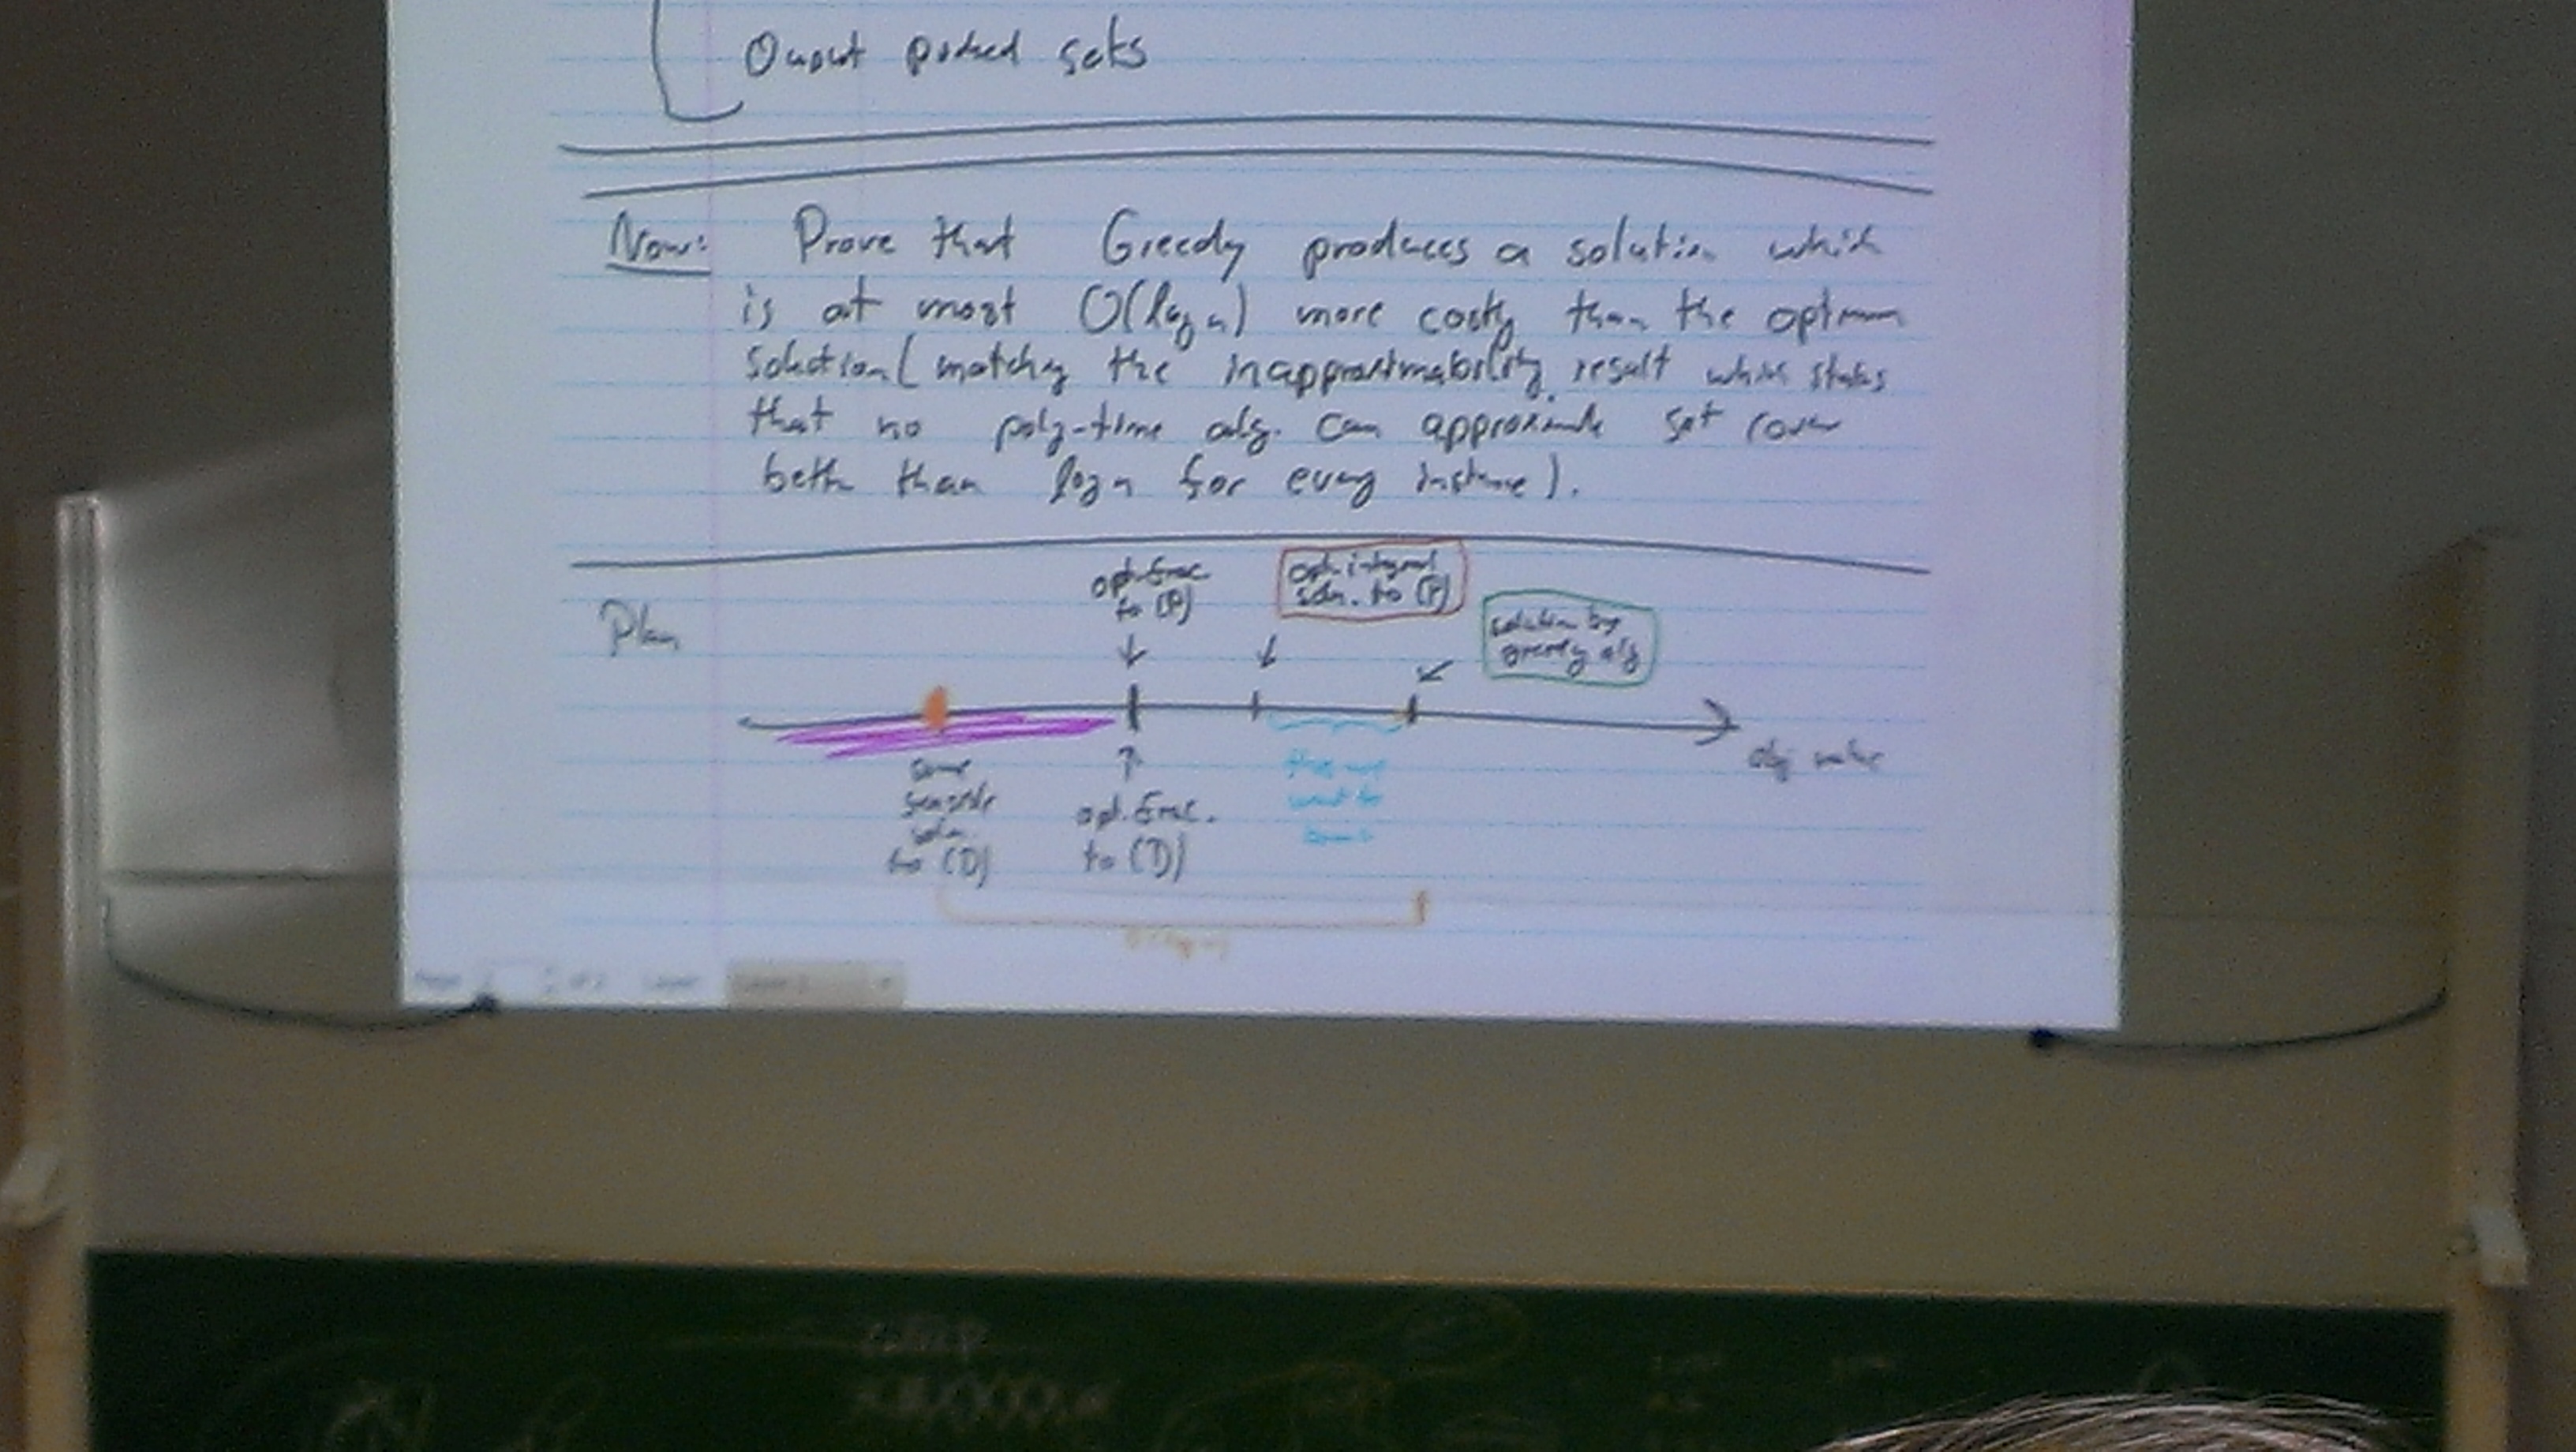 Output picked sets
Now: Prove that Greedy produces a solution which
is at most O(log n) more costly than the optimum
solution (matching the inapproximability result which states
that no poly-time alg. can approximate set cover
better than log n for every instance).
opt. frac
to (P)
opt. integral
soln. to (P)
solution by
greedy alg
Plan
obj value
some
feasible
soln.
to (D)
opt. frac.
to (D)
this we
want to
Page
of 2
Layer